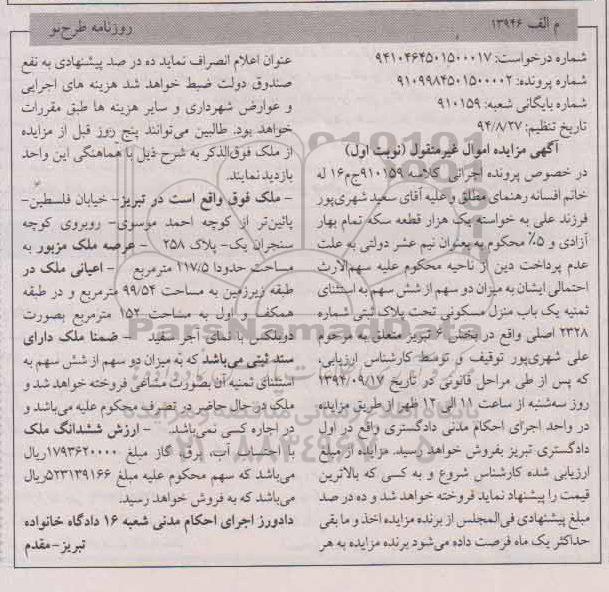 م الف ۱۳۹۴۶
روزنامه طرح‌نو
شماره درخواست: ۹۴۱۰۴۶۴۵۰۱۵۰۰۰۱۷
شماره پرونده: ۹۱۰۹۹۸۴۵۰۱۵۰۰۰۰۲
شماره بایگانی شعبه: ۹۱۰۱۵۹
تاریخ تنظیم: ۹۴/۸/۲۷
آگهی مزایده اموال غیرمنقول (نوبت اول)
در خصوص پرونده اجرائی کلاسه ۹۱۰۱۵۹ج‌م۱۶ له
خانم افسانه رهنمای مطلق و علیه آقای سعید شهری‌پور
فرزند علی به خواسته یک هزار قطعه سکه تمام بهار
آزادی و ۵٪ محکوم به بعنوان نیم عشر دولتی به علت
عدم پرداخت دین از ناحیه محکوم علیه سهم‌الارث
احتمالی ایشان به میزان دو سهم از شش سهم به استثنای
ثمنیه یک باب منزل مسکونی تحت پلاک ثبتی شماره
۲۳۲۸ اصلی واقع در بخش ۶ تبریز متعلق به مرحوم
علی شهری‌پور توقیف و توسط کارشناس ارزیابی،
که پس از طی مراحل قانونی در تاریخ ۱۳۹۴/۰۹/۱۷
روز سه‌شنبه از ساعت ۱۱ الی ۱۲ ظهر از طریق مزایده
در واحد اجرای احکام مدنی دادگستری واقع در اول
دادگستری تبریز بفروش خواهد رسید. مزایده از مبلغ
ارزیابی شده کارشناس شروع و به کسی که بالاترین
قیمت را پیشنهاد نماید فروخته خواهد شد و ده در صد
مبلغ پیشنهادی فی‌المجلس از برنده مزایده اخذ و ما بقی
حداکثر یک ماه فرصت داده می‌شود برنده مزایده به هر
عنوان اعلام انصراف نماید ده در صد پیشنهادی به نفع
صندوق دولت ضبط خواهد شد هزینه های اجرایی
و عوارض شهرداری و سایر هزینه ها طبق مقررات
خواهد بود. طالبین می‌توانند پنج روز قبل از مزایده
از ملک فوق‌الذکر به شرح ذیل با هماهنگی این واحد
بازدید نمایند.
- ملک فوق واقع است در تبریز- خیابان فلسطین-
پائین‌تر از کوچه احمد موسوی- روبروی کوچه
سنجران یک- پلاک ۲۵۸ - عرصه ملک مزبور به
مساحت حدودا ۱۱۷/۵ مترمربع - اعیانی ملک در
طبقه زیرزمین به مساحت ۹۹/۵۴ مترمربع و در طبقه
همکف و اول به مساحت ۱۵۲ مترمربع بصورت
دوبلکس با نمای آجر سفید - ضمنا ملک دارای
سند ثبتی می‌باشد که به میزان دو سهم از شش سهم به
استثنای ثمنیه آن بصورت مشاعی فروخته خواهد شد و
ملک در حال حاضر در تصرف محکوم علیه می‌باشد و
در اجاره کسی نمی‌باشد. - ارزش ششدانگ ملک
با احتساب آب، برق، گاز مبلغ ۱۷۹۳۶۲۰۰۰۰ریال
می‌باشد که سهم محکوم علیه مبلغ ۵۲۳۱۳۹۱۶۶ریال
می‌باشد که به فروش خواهد رسید.
دادورز اجرای احکام مدنی شعبه ۱۶ دادگاه خانواده
تبریز- مقدم
ParsNamadData